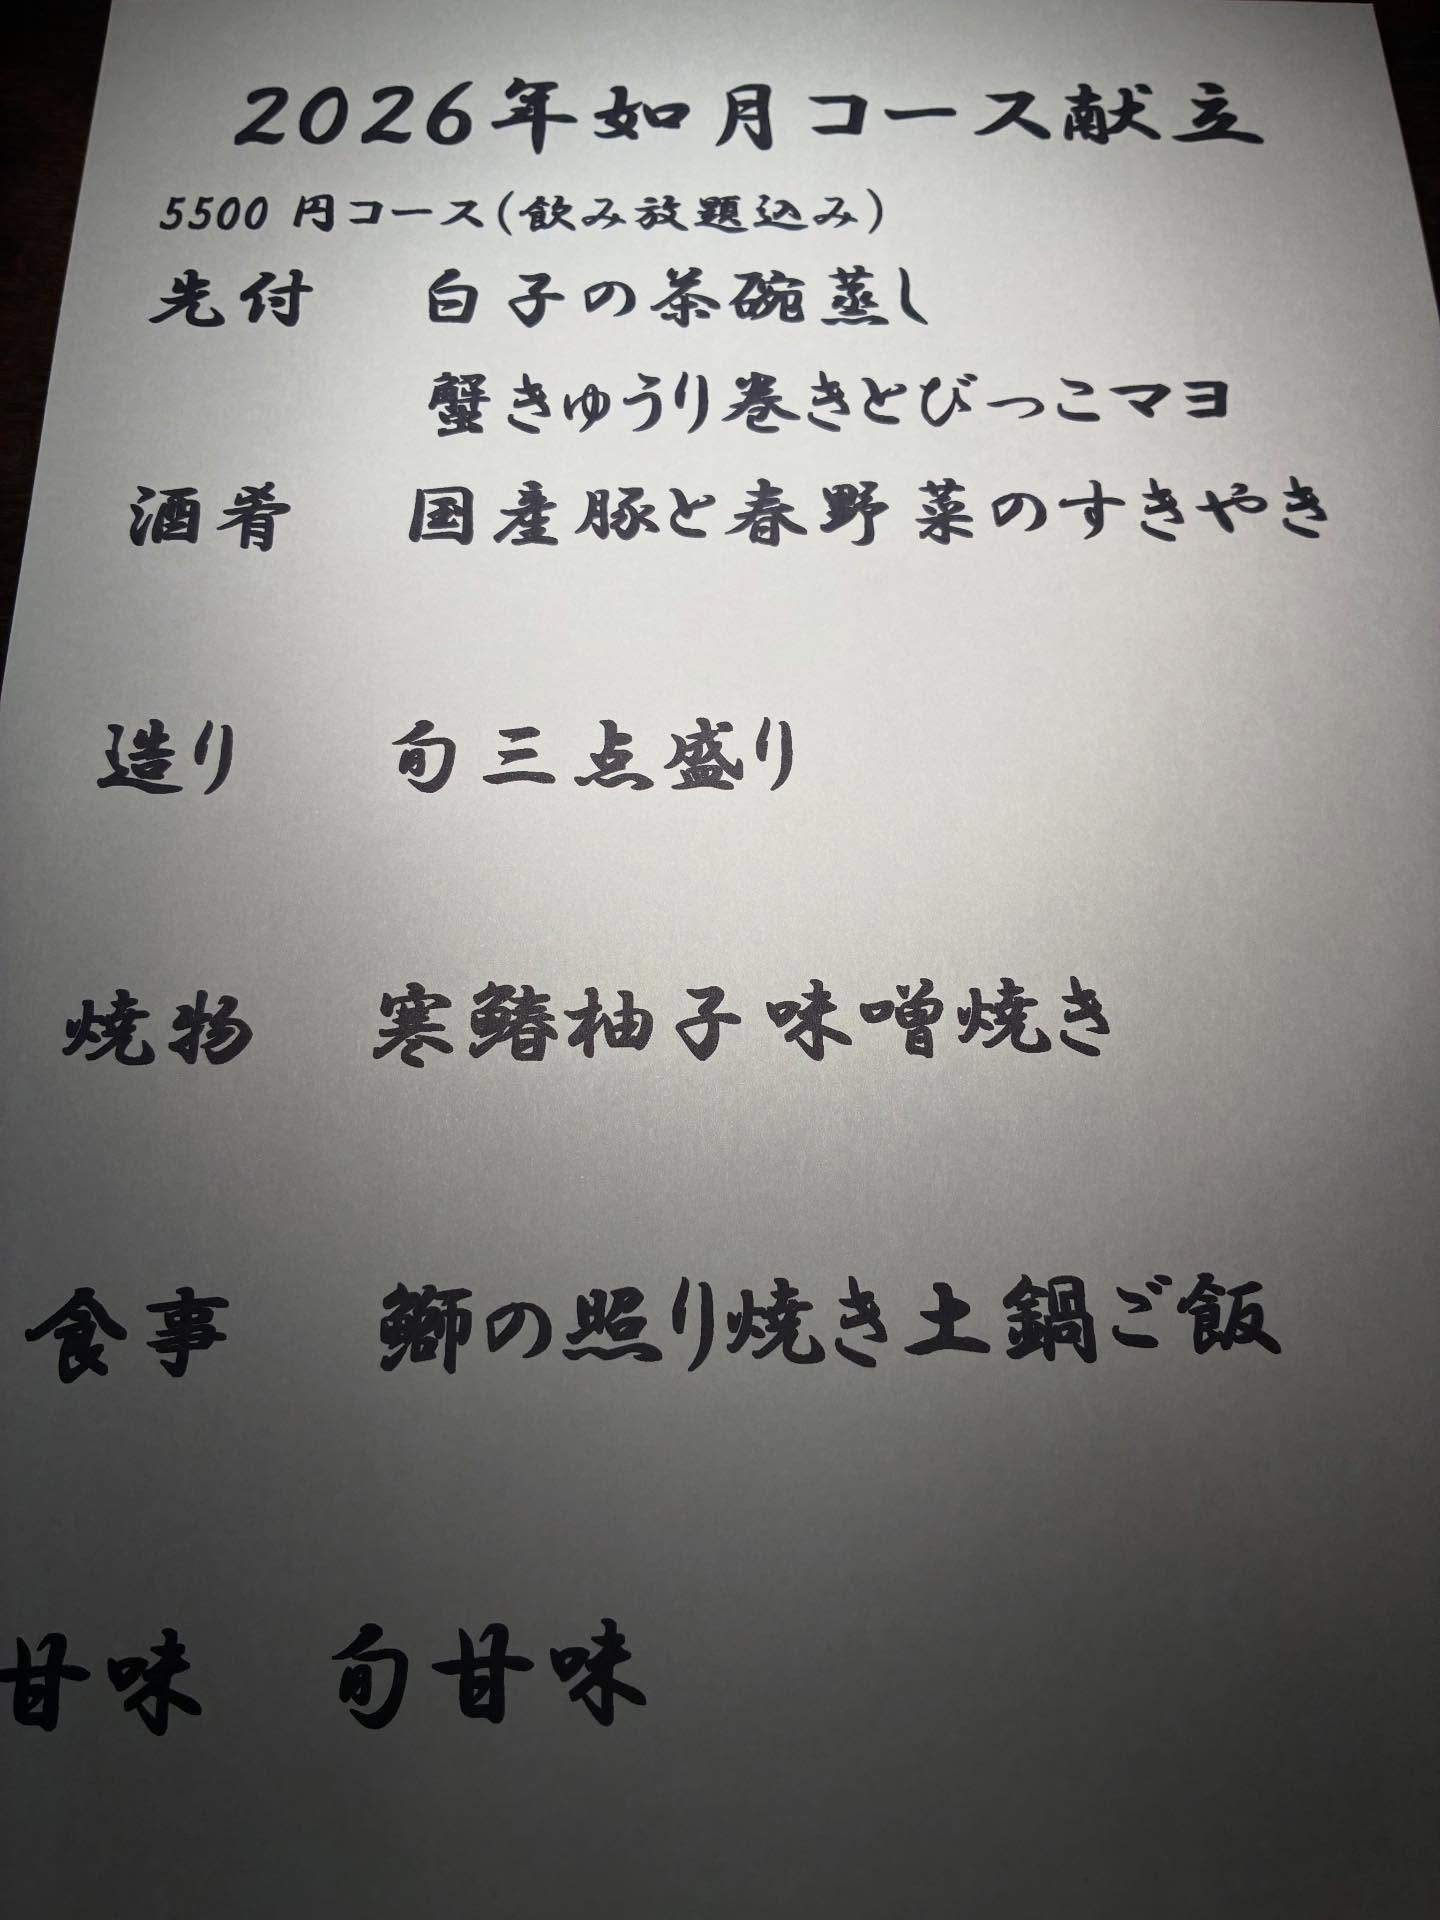 2026年如月コース献立
5500 円コース(飲み放題込み)
先付 白子の茶碗蒸し
蟹きゅうり巻きとびっこマヨ
酒肴 国産豚と春野菜のすきやき
造り 旬三点盛り
焼物 寒鰆柚子味噌焼き
食事 鰤の照り焼き土鍋ご飯
甘味 旬甘味